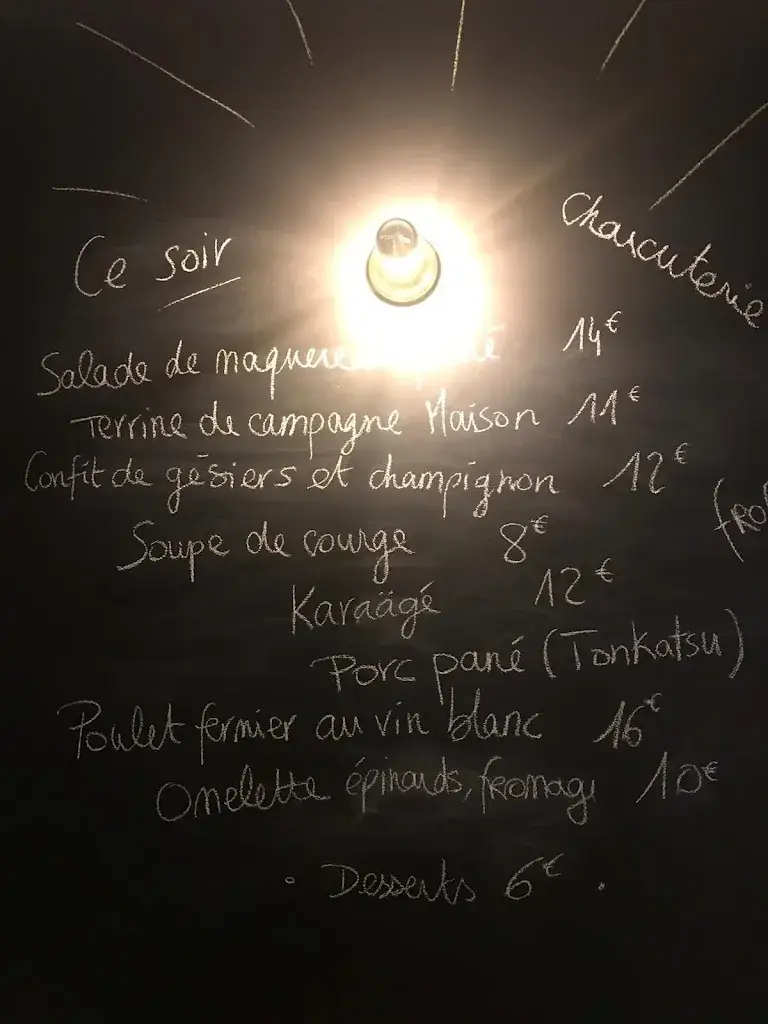 Ce soir
Charcuterie
Salade de 14€
Terrine de campagne Maison 11€
Confit de gésiers et champignon 12€
Soupe de courge 8€
Karaägé 12€
Porc pané (Tonkatsu)
Poulet fermier au vin blanc 16€
Omelette épinards, fromage 10€
• Desserts 6€ •